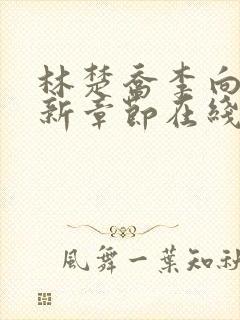 林楚喬李向
新章節在綫
風舞一葉知秋